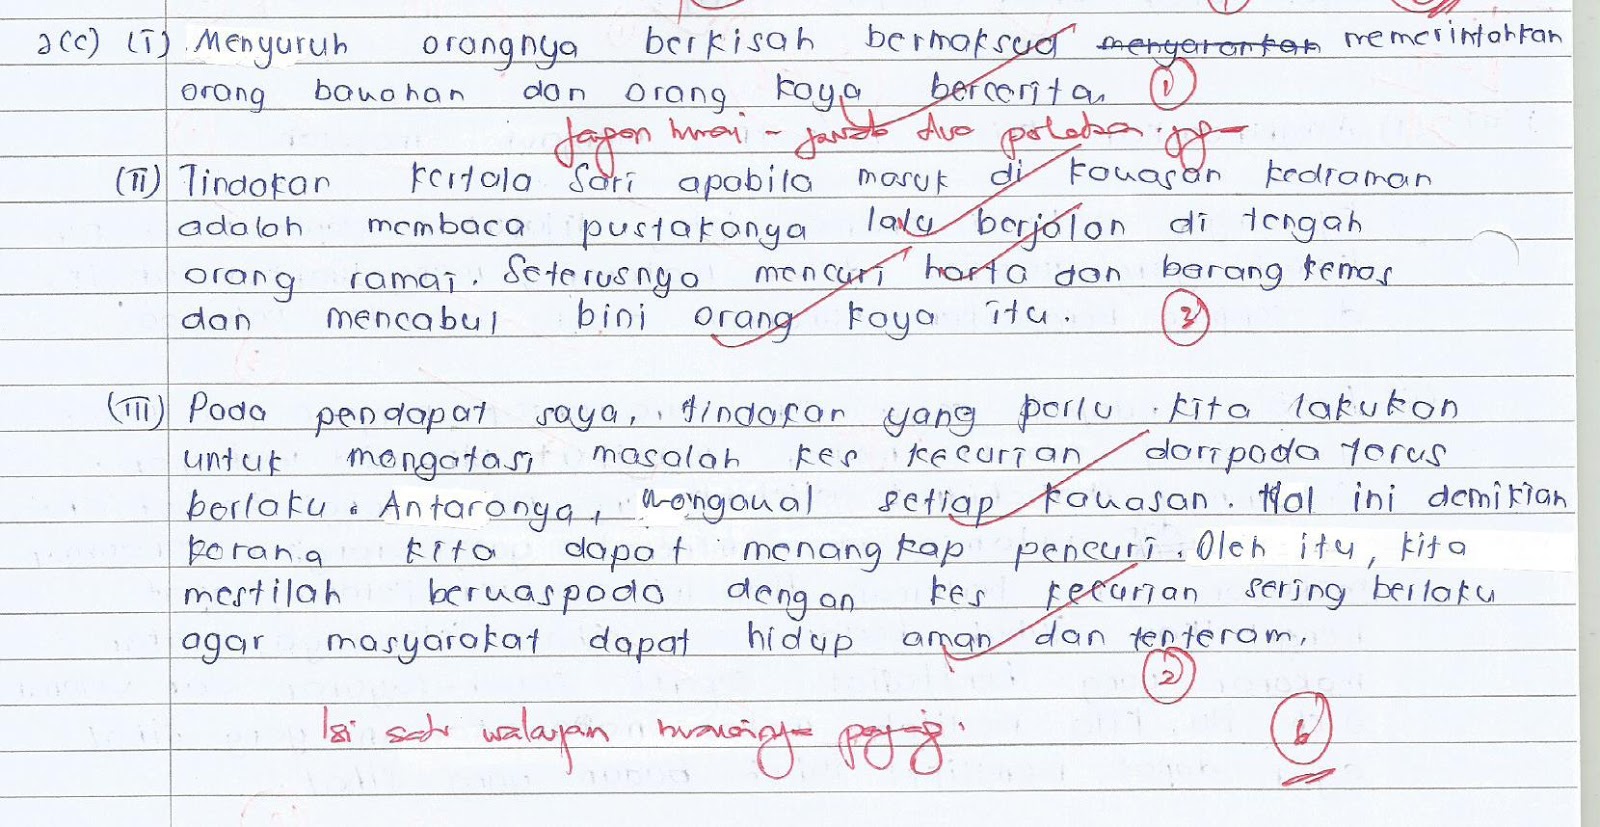 2(c) (i) Menyuruh orangnya berkisah bermaksud menyarankan memerintahkan
orang bawahan dan orang kaya bercerita. 1
Jangan huraí - jawab dua perkataan
(ii) Tindakan Kertala Sari apabila masuk di kawasan kediaman
adalah membaca pustakanya lalu berjalan di tengah
orang ramai. Seterusnya mencuri harta dan barang kemas
dan mencabul bini orang kaya itu. 3
(iii) Pada pendapat saya, tindakan yang perlu kita lakukan
untuk mengatasi masalah kes kecurian daripada terus
berlaku. Antaranya, mengawal setiap kawasan. Hal ini demikian
kerana kita dapat menangkap pencuri. Oleh itu, kita
mestilah berwaspada dengan kes kecurian sering berlaku
agar masyarakat dapat hidup aman dan tenteram.
2
Isi satu walaupun huraiannya panjang.
6